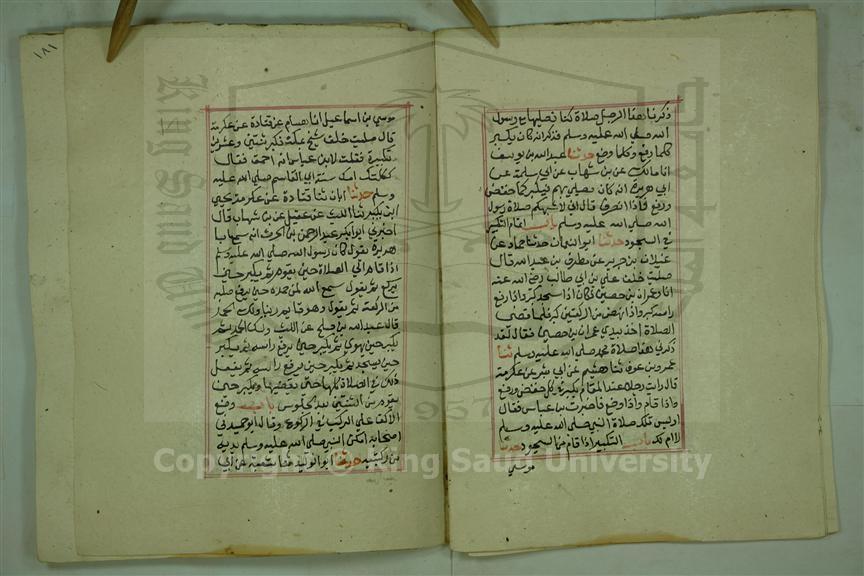 ذكرنا هذا الرجل صلاة كنا نصليها مع رسول
الله صلى الله عليه وسلم فذكر انه كان يكبر
كلما رفع وكلما وضع حدثنا عبد الله بن يوسف
انا مالك عن بن شهاب عن ابي سلمة عن
ابي هريرة انه كان يصلي بهم فيكبر كلما خفض
ورفع فاذا انصرف قال اني لاشبهكم صلاة رسول
الله صلى الله عليه وسلم باب اتمام التكبير
في السجود حدثنا ابو النعمان حدثنا حماد عن
غيلان بن جرير عن مطرف بن عبد الله قال
صليت خلف علي بن ابي طالب رضي الله عنه
انا وعمران بن حصين فكان اذا سجد كبر واذا رفع
راسه كبر واذا نهض من الركعتين كبر فلما قضى
الصلاة اخذ بيدي عمران بن حصين فقال لقد
ذكرني هذا صلاة محمد صلى الله عليه وسلم ثنا
عمرو بن عون ثنا هشيم عن ابي بشر عن عكرمة
قال رايت رجلا عند المقام يكبر في كل خفض ورفع
واذا قام واذا وضع فاخبرت بن عباس فقال
اوليس تلك صلاة النبي صلى الله عليه وسلم
لا ام لك باب التكبير اذا قام من السجود حدثنا
موسي
١٨١
موسي بن اسماعيل انا همام عن قتادة عن عكرمة
قال صليت خلف شيخ بمكة فكبر ثنتين وعشرين
تكبيرة فقلت لابن عباس انه احمق فقال
ثكلتك امك سنة ابي القاسم صلى الله عليه
وسلم حدثنا ابان ثنا قتادة عن عكرمة يحيى
ابن بكير ثنا الليث عن عقيل عن بن شهاب قال
اخبرني ابو بكر بن عبد الرحمن بن الحرث انه سمع ابا
هريرة يقول كان رسول الله صلى الله عليه وسلم
اذا قام الي الصلاة يكبر حين يقوم ثم يكبر حين
يركع ثم يقول سمع الله لمن حمده حين يرفع صلبه
من الركعة ثم يقول وهو قايم ربنا ولك الحمد
قال عبد الله بن صلح عن الليث ولك الحمد ثم
يكبر حين يهوي ثم يكبر حين يرفع راسه ثم يكبر
حين يسجد ثم يكبر حين يرفع راسه ثم يفعل
ذلك في الصلاة كلها حتى يقضيها ويكبر حين
يقوم من الثنتين بعد الجلوس باب وضع
الاكف على الركب في الركوع وقال ابو حميد في
اصحابه امكن النبي صلى الله عليه وسلم يديه
من ركبتيه حدثنا ابو الوليد ثنا شعبة عن ابي
Copyright © King Saud University
King Saud University
1957